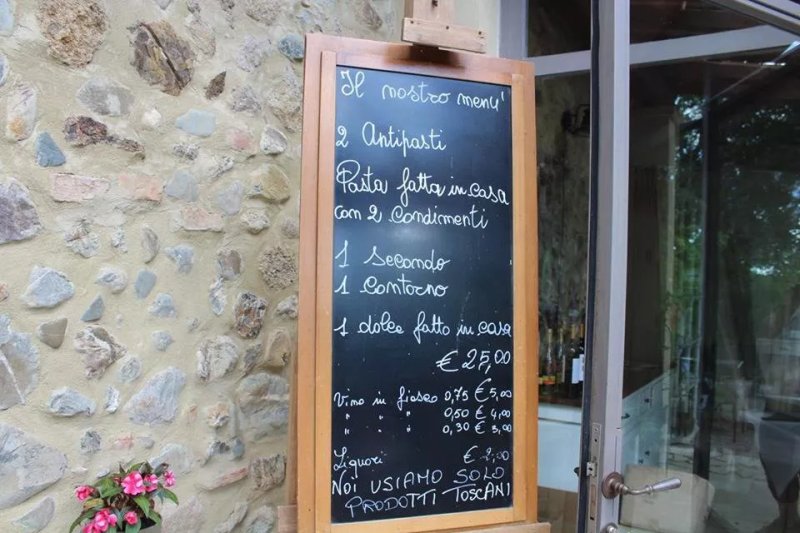 Il nostro menu'
2 Antipasti
Pasta fatta in casa
con 2 condimenti
1 secondo
1 contorno
1 dolce fatto in casa
€ 25,00
Vino in fiasco 0,75 € 5,00
" " " 0,50 € 4,00
" " " 0,30 € 3,00
Liquori € 2,00
NOI USIAMO SOLO
PRODOTTI TOSCANI